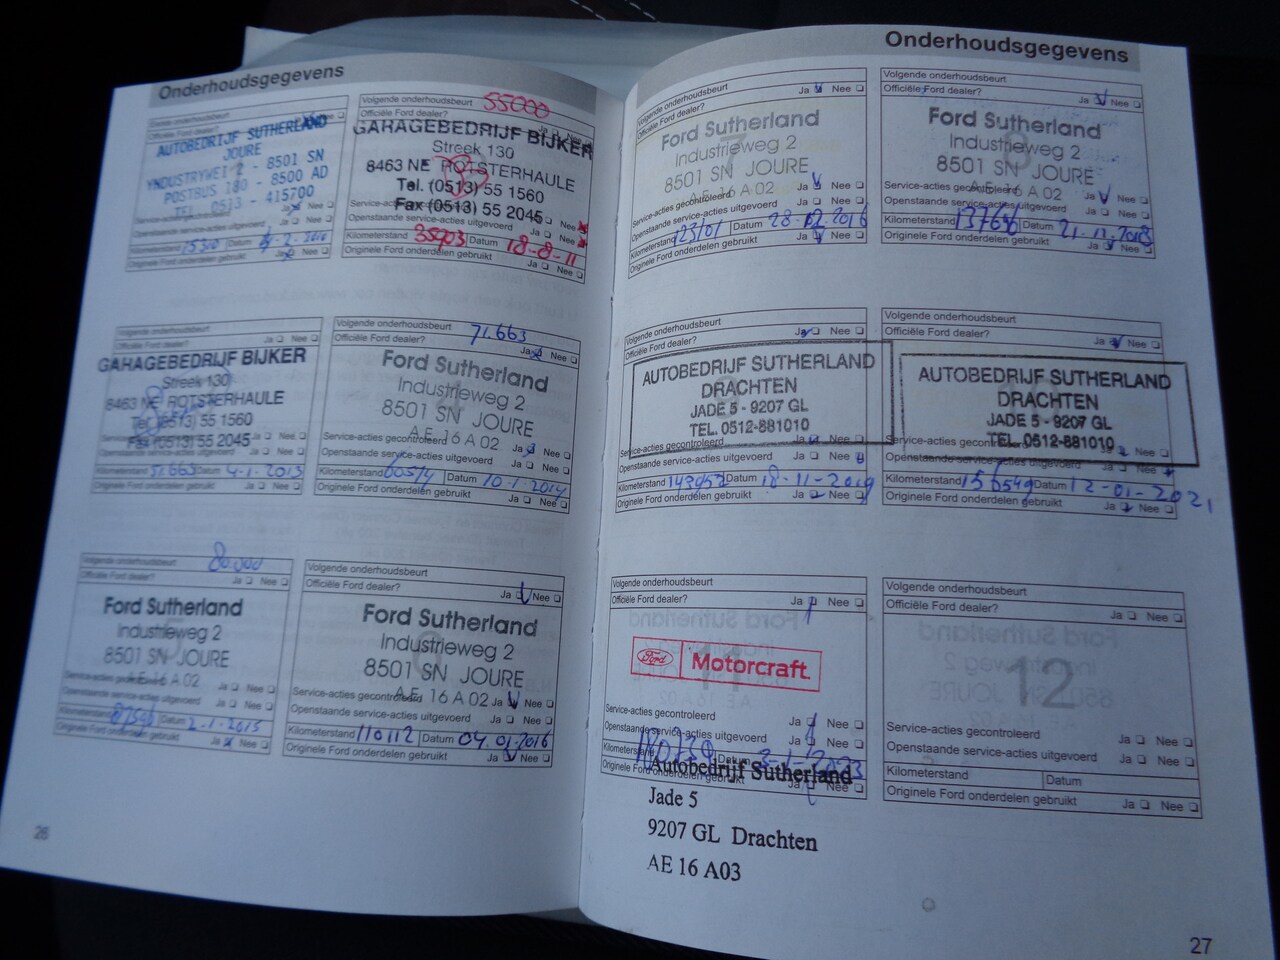 Onderhoudsgegevens
Officiële Ford dealer?
AUTOBEDRIJF SUTHERLAND
JOURE
YNDUSTRYWEI 2 - 8501 SN
POSTBUS 180 - 8500 AD
TEL. 0513 - 415700
Service-acties gecontroleerd Ja Nee
Ja Nee
15300 Datum
Ja Nee
Volgende onderhoudsbeurt 55000
Officiële Ford dealer? Ja Nee
GARAGEBEDRIJF BIJKER
Streek 130
8463 NE ROTSTERHAULE
Tel. (0513) 55 1560
Fax (0513) 55 2045
Openstaande service-acties uitgevoerd Ja Nee
Kilometerstand 35903 Datum 18-8-11
Originele Ford onderdelen gebruikt Ja Nee
Volgende onderhoudsbeurt
Officiële Ford dealer? Ja Nee
GARAGEBEDRIJF BIJKER
Streek 130
8463 NE ROTSTERHAULE
Tel. (0513) 55 1560
Fax (0513) 55 2045 Ja Nee
51.663 Datum 4-1-2013
Ja Nee
Volgende onderhoudsbeurt 71.663
Officiële Ford dealer? Ja Nee
Ford Sutherland
Industrieweg 2
8501 SN JOURE
AE 16 A 02
Service-acties gecontroleerd Ja Nee
Openstaande service-acties uitgevoerd Ja Nee
Kilometerstand Datum 10-1-2014
Originele Ford onderdelen gebruikt Ja Nee
Volgende onderhoudsbeurt
Officiële Ford dealer? Ja Nee
Ford Sutherland
Industrieweg 2
8501 SN JOURE
AE 16 A 02
Service-acties gecontroleerd Ja Nee
Openstaande service-acties uitgevoerd Ja Nee
Kilometerstand Datum 2-1-2015
Originele Ford onderdelen gebruikt Ja Nee
Volgende onderhoudsbeurt
Officiële Ford dealer? Ja Nee
Ford Sutherland
Industrieweg 2
8501 SN JOURE
AE 16 A 02
Service-acties gecontroleerd Ja Nee
Openstaande service-acties uitgevoerd Ja Nee
Kilometerstand 110112 Datum 04-01-2016
Originele Ford onderdelen gebruikt Ja Nee
26
Onderhoudsgegevens
Volgende onderhoudsbeurt
Officiële Ford dealer? Ja Nee
Ford Sutherland
Industrieweg 2
8501 SN JOURE
AE 16 A 02
Service-acties gecontroleerd Ja Nee
Openstaande service-acties uitgevoerd Ja Nee
Kilometerstand 123101 Datum
Originele Ford onderdelen gebruikt Ja Nee
Volgende onderhoudsbeurt
Officiële Ford dealer? Ja Nee
Ford Sutherland
Industrieweg 2
8501 SN JOURE
AE 16 A 02
Service-acties gecontroleerd Ja Nee
Openstaande service-acties uitgevoerd Ja Nee
Kilometerstand Datum
Originele Ford onderdelen gebruikt Ja Nee
Volgende onderhoudsbeurt
Officiële Ford dealer? Ja Nee
AUTOBEDRIJF SUTHERLAND
DRACHTEN
JADE 5 - 9207 GL
TEL. 0512-881010
Service-acties gecontroleerd Ja Nee
Openstaande service-acties uitgevoerd Ja Nee
Kilometerstand 143952 Datum 18-11-2019
Originele Ford onderdelen gebruikt Ja Nee
Volgende onderhoudsbeurt
Officiële Ford dealer? Ja Nee
AUTOBEDRIJF SUTHERLAND
DRACHTEN
JADE 5 - 9207 GL
TEL. 0512-881010
Service-acties gecontroleerd Ja Nee
Openstaande service-acties uitgevoerd Ja Nee
Kilometerstand 156549 Datum 12-01-2021
Originele Ford onderdelen gebruikt Ja Nee
Volgende onderhoudsbeurt
Officiële Ford dealer? Ja Nee
Ford Motorcraft
11
Service-acties gecontroleerd Ja Nee
Openstaande service-acties uitgevoerd Ja Nee
Kilometerstand Datum
Originele Ford onderdelen gebruikt Ja Nee
Autobedrijf Sutherland
Jade 5
9207 GL Drachten
AE 16 A03
Volgende onderhoudsbeurt
Officiële Ford dealer? Ja Nee
12
Service-acties gecontroleerd Ja Nee
Openstaande service-acties uitgevoerd Ja Nee
Kilometerstand Datum
Originele Ford onderdelen gebruikt Ja Nee
27